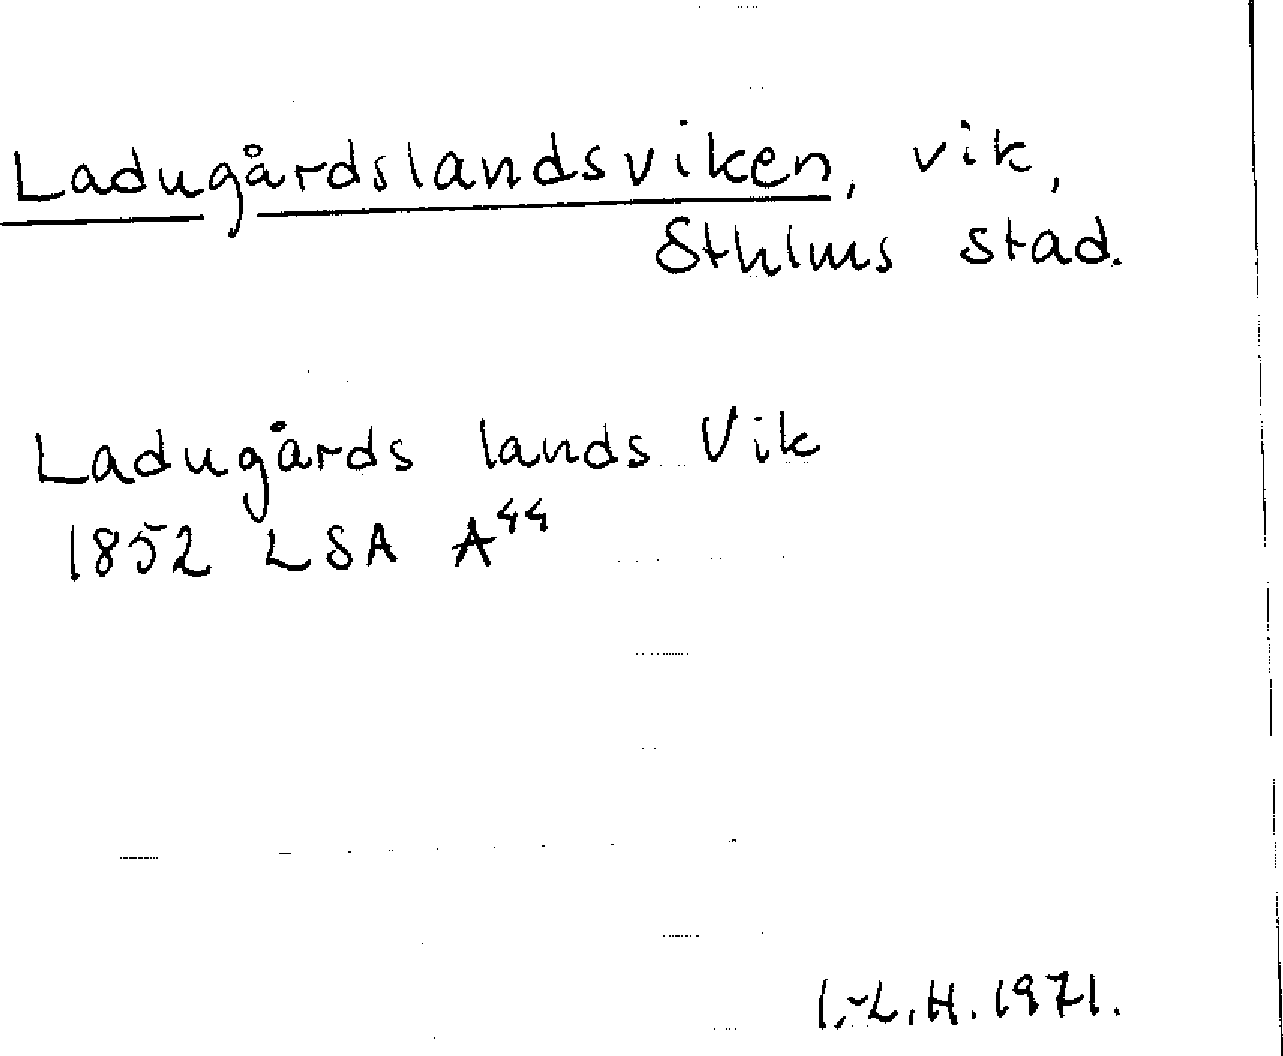 Ladugårdslandsviken, vik,
Sthlms stad.
Ladugårds lands Vik
1852 LSA A44
I.-L.H. 1971.